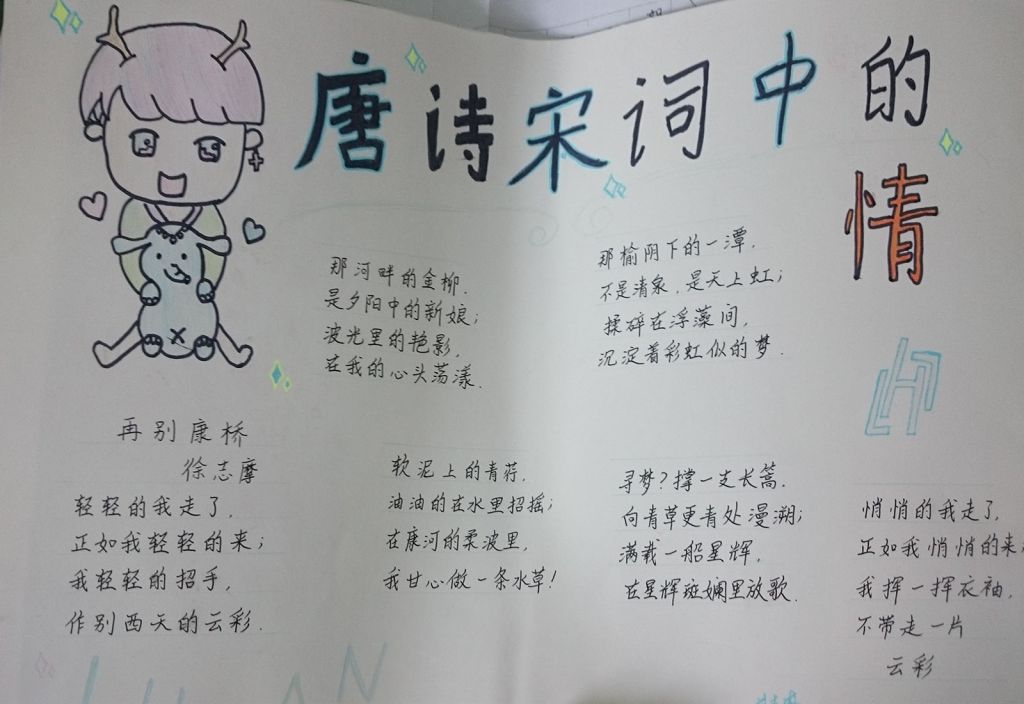 唐诗宋词中的
情
再别康桥
徐志摩
轻轻的我走了,
正如我轻轻的来;
我轻轻的招手,
作别西天的云彩.
那河畔的金柳.
是夕阳中的新娘;
波光里的艳影,
在我的心头荡漾.
软泥上的青荇.
油油的在水里招摇;
在康河的柔波里,
我甘心做一条水草!
那榆阴下的一潭,
不是清泉,是天上虹;
揉碎在浮藻间,
沉淀着彩虹似的梦.
寻梦?撑一支长篙.
向青草更青处漫溯;
满载一船星辉,
在星辉斑斓里放歌.
LH
悄悄的我走了,
正如我悄悄的来;
我挥一挥衣袖,
不带走一片
云彩